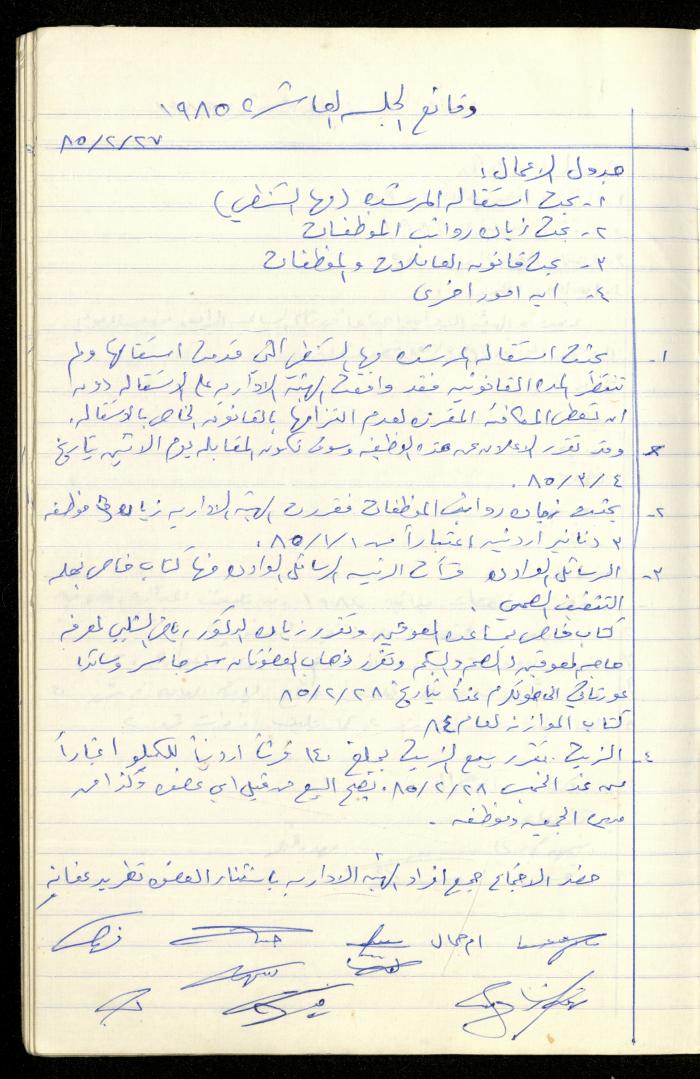 وقائع الجلسة العاشرة ١٩٨٥
٨٥/٢/٢٧
جدول الاعمال:
١- بحث استقالة المرشده (مها الشنطي)
٢- بحث زيادة رواتب الموظفات
٣- بحث قانون العاملات والموظفات
٤- اية امور اخرى
١- بحثت استقالة المرشده مها الشنطي التي قدمت استقالتها ولم
تنتظر المدة القانونية فقد وافقت الهيئة الادارية على الاستقالة دون
ان تعطى المكافئة المقررة لعدم التزامها بالقانون الخاص بالاستقالة.
وقد تقرر الاعلان عن هذه الوظيفة وسوف تكون المقابلة يوم الاثنين بتاريخ
٨٥/٣/٤.
٢- بحثت زيادة رواتب الموظفات فقررت الهيئة الادارية زيادة موظفه
٣ دنانير اردنية اعتباراً من ٨٥/١/١.
٣- الرسائل الواردة قرأت الرئيسة الرسائل الواردة منها كتاب خاص بحملة
التثقيف الصحي.
كتاب خاص بمساعدة المعوقين وتقرر زيارة الدكتور رياض الشلبي لمعرفة
المعوقين الصم والبكم وتقرر ذهاب العضوتان سمر جاسر وساندا
الى طولكرم غداً بتاريخ ٨٥/٢/٢٨
كتاب الموازنة لعام ٨٤
٤- الزيت. تقرر بيع الزيت بمبلغ ١٤٠ قرشاً اردنياً للكيلو اعتباراً
من غد الخميس ٨٥/٢/٢٨. يصح البيع من قبل اي عضوه وكذا من
الجمعية وموظفه.
حضر الاجتماع جميع افراد الهيئة الادارية باستثناء العضوه تغريد عنانه
ام جمال